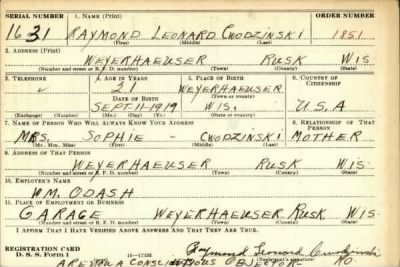 SERIAL NUMBER 1. NAME (Print) ORDER NUMBER
1631 RAYMOND LEONARD CWODZINSKI 1851
(First) (Middle) (Last)
2. ADDRESS (Print)
WEYERHAEUSER RUSK WIS.
(Number and street or R. F. D. number) (Town) (County) (State)
3. TELEPHONE 4. AGE IN YEARS 5. PLACE OF BIRTH 6. COUNTRY OF CITIZENSHIP
21 WEYERHAEUSER
DATE OF BIRTH (Town or county)
SEPT-11-1919 WIS. U.S.A
(Exchange) (Number) (Mo.) (Day) (Yr.) (State or country)
7. NAME OF PERSON WHO WILL ALWAYS KNOW YOUR ADDRESS 8. RELATIONSHIP OF THAT PERSON
MRS. SOPHIE - CWODZINSKI MOTHER
(Mr., Mrs., Miss) (First) (Middle) (Last)
9. ADDRESS OF THAT PERSON
WEYERHAEUSER RUSK WIS.
(Number and street or R. F. D. number) (Town) (County) (State)
10. EMPLOYER'S NAME
WM. ODASH
11. PLACE OF EMPLOYMENT OR BUSINESS
GARAGE WEYERHAEUSER RUSK WIS
(Number and street or R. F. D. number) (Town) (County) (State)
I AFFIRM THAT I HAVE VERIFIED ABOVE ANSWERS AND THAT THEY ARE TRUE.
REGISTRATION CARD
D. S. S. Form 1 16-17105 Raymond Leonard Cwodzinski
(Registrant's signature)
ARE YOU A CONSCIENTIOUS OBJECTOR NO.